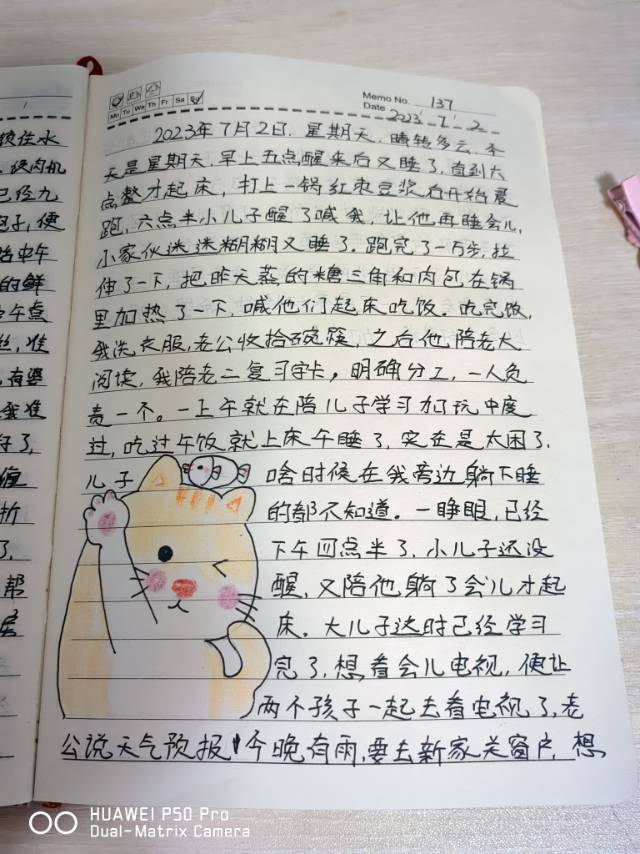 锁住水
,绞肉机
已经九
包子,便
给中午
的鲜
中午点
丝,准
,有婆
我准
好了,
值
折
了.
帮
Mo Tu We Th Fr Sa Su
Memo No. 137
Date 2023 / 7 / 2
2023年7月2日.星期天,晴转多云.今
天是星期天,早上五点醒来后又睡了,直到六
点整才起床,打上一锅红枣豆浆后开始晨
跑,六点半小儿子醒了喊我,让他再睡会儿,
小家伙迷迷糊糊又睡了.跑完了一万步,拉
伸了一下,把昨天蒸的糖三角和肉包在锅
里加热了一下,喊他们起床吃饭.吃完饭,
我洗衣服,老公收拾碗筷,之后他陪老大
阅读,我陪老二复习字卡,明确分工,一人负
责一个。一上午就在陪儿子学习加玩中度
过,吃过午饭就上床午睡了,实在是太困了.
儿子 啥时候在我旁边躺下睡
的都不知道。一睁眼,已经
下午四点半了,小儿子还没
醒,又陪他躺了会儿才起
床.大儿子这时已经学习
完了,想看会儿电视,便让
两个孩子一起去看电视了,老
公说天气预报今晚有雨,要去新家关窗户,想
HUAWEI P50 Pro
Dual-Matrix Camera